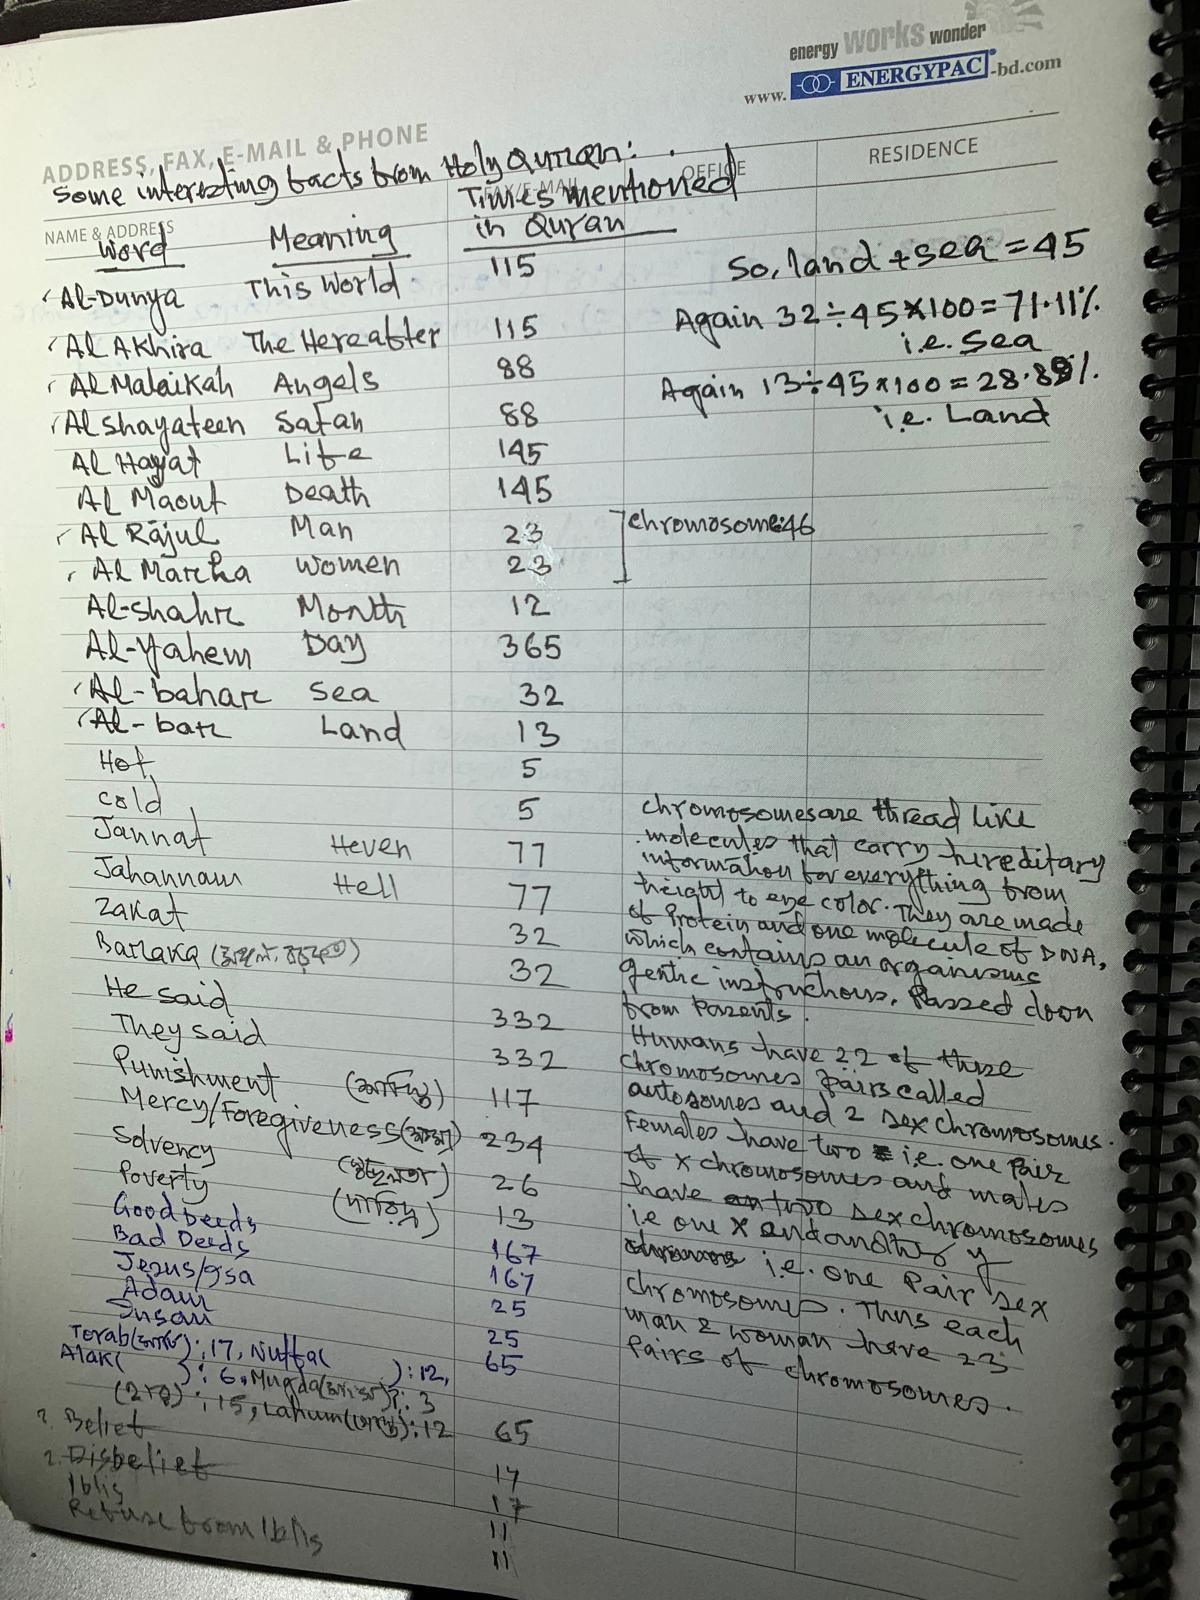 energy works wonder
www. ENERGYPAC -bd.com
ADDRESS, FAX, E-MAIL & PHONE
Some interesting facts from Holy Quran:
NAME & ADDRESS FAX/E-MAIL OFFICE RESIDENCE
Word Meaning Times mentioned in Quran
Al-Dunya This World 115
Al Akhira The Hereafter 115
Al Malaikah Angels 88
Al Shayateen Satan 88
Al Hayat Life 145
Al Maout Death 145
Al Rajul Man 23
Al Marha Women 23
chromosome:46
Al-shahr Month 12
Al-Yahem Day 365
Al-bahar Sea 32
Al-bar Land 13
Hot 5
cold 5
Jannat Heven 77
Jahannam Hell 77
Zakat 32
Baraka 32
He said 332
They said 332
Punishment 117
Mercy/Foregiveness 234
Solvency 26
Poverty 13
Good Deeds 167
Bad Deeds 167
Jesus/Isa 25
Adam 25
Insan 65
Torab : 17, Nutfa( ) : 12,
Alak( ) : 6, Mugda : 3
: 15, Lahum : 12 65
? Belief 17
? Disbelief 17
Iblis 11
Refuse from Iblis 11
So, land + sea = 45
Again 32 ÷ 45 × 100 = 71.11%
i.e. Sea
Again 13 ÷ 45 × 100 = 28.89%
i.e. Land
chromosomes are thread like
molecules that carry hireditary
information for everything from
height to eye color. They are made
of Protein and one molecule of DNA,
which contains an organisms
gentic instructions, Passed down
from Parents.
Humans have 22 of these
chromosomes pairs called
autosomes and 2 sex chromosomes.
Females have two i.e. one Pair
of x chromosomes and males
have two sex chromosomes
i.e one x and another y
i.e. one Pair sex
chromosomes. Thus each
man & woman have 23
Pairs of chromosomes.